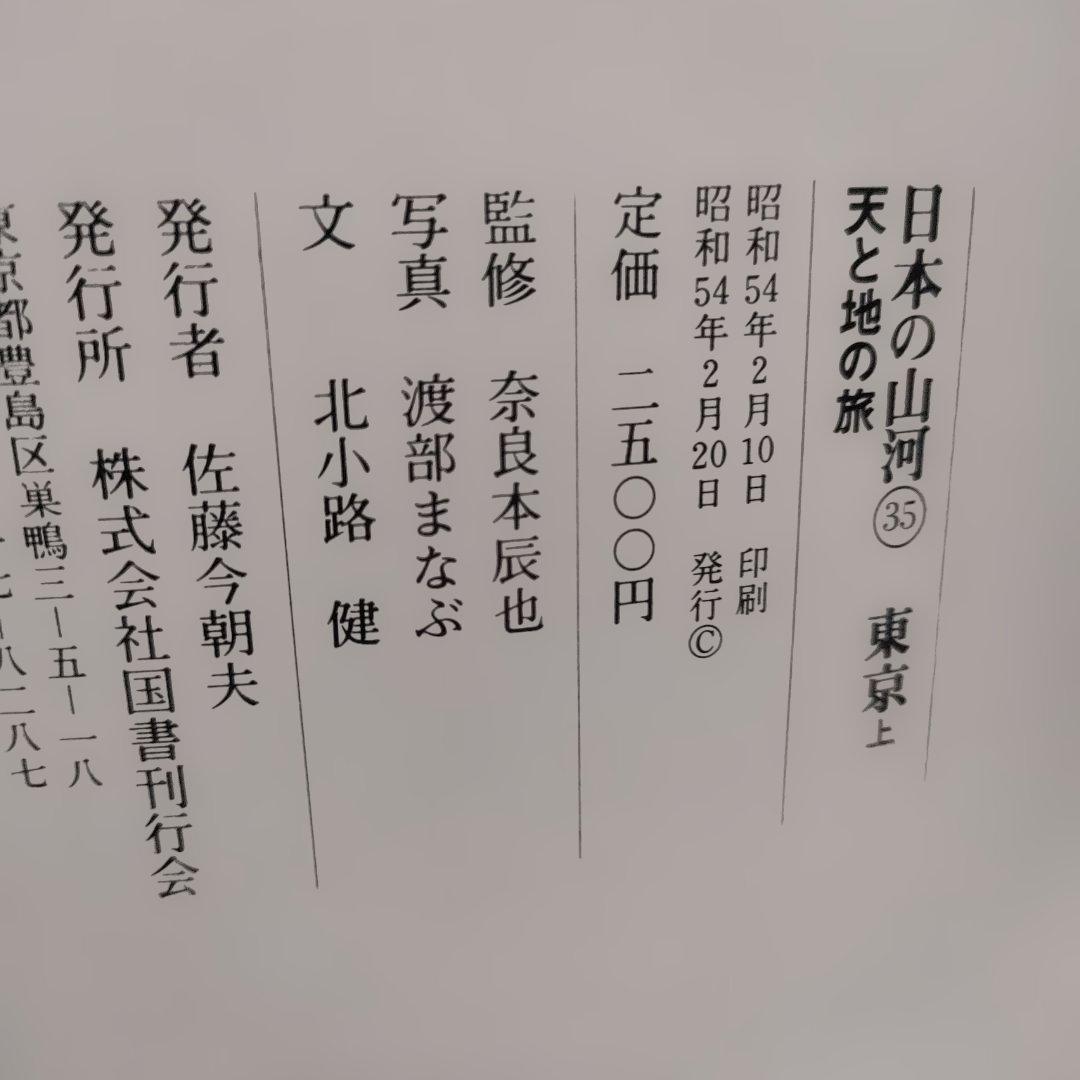 日本の山河㉟ 東京上
天と地の旅
昭和54年2月10日 印刷
昭和54年2月20日 発行©
定価 二五〇〇円
監修 奈良本辰也
写真 渡部まなぶ
文 北小路 健
発行者 佐藤今朝夫
発行所 株式会社国書刊行会
東京都豊島区巣鴨三―五―一八
七―八二八七